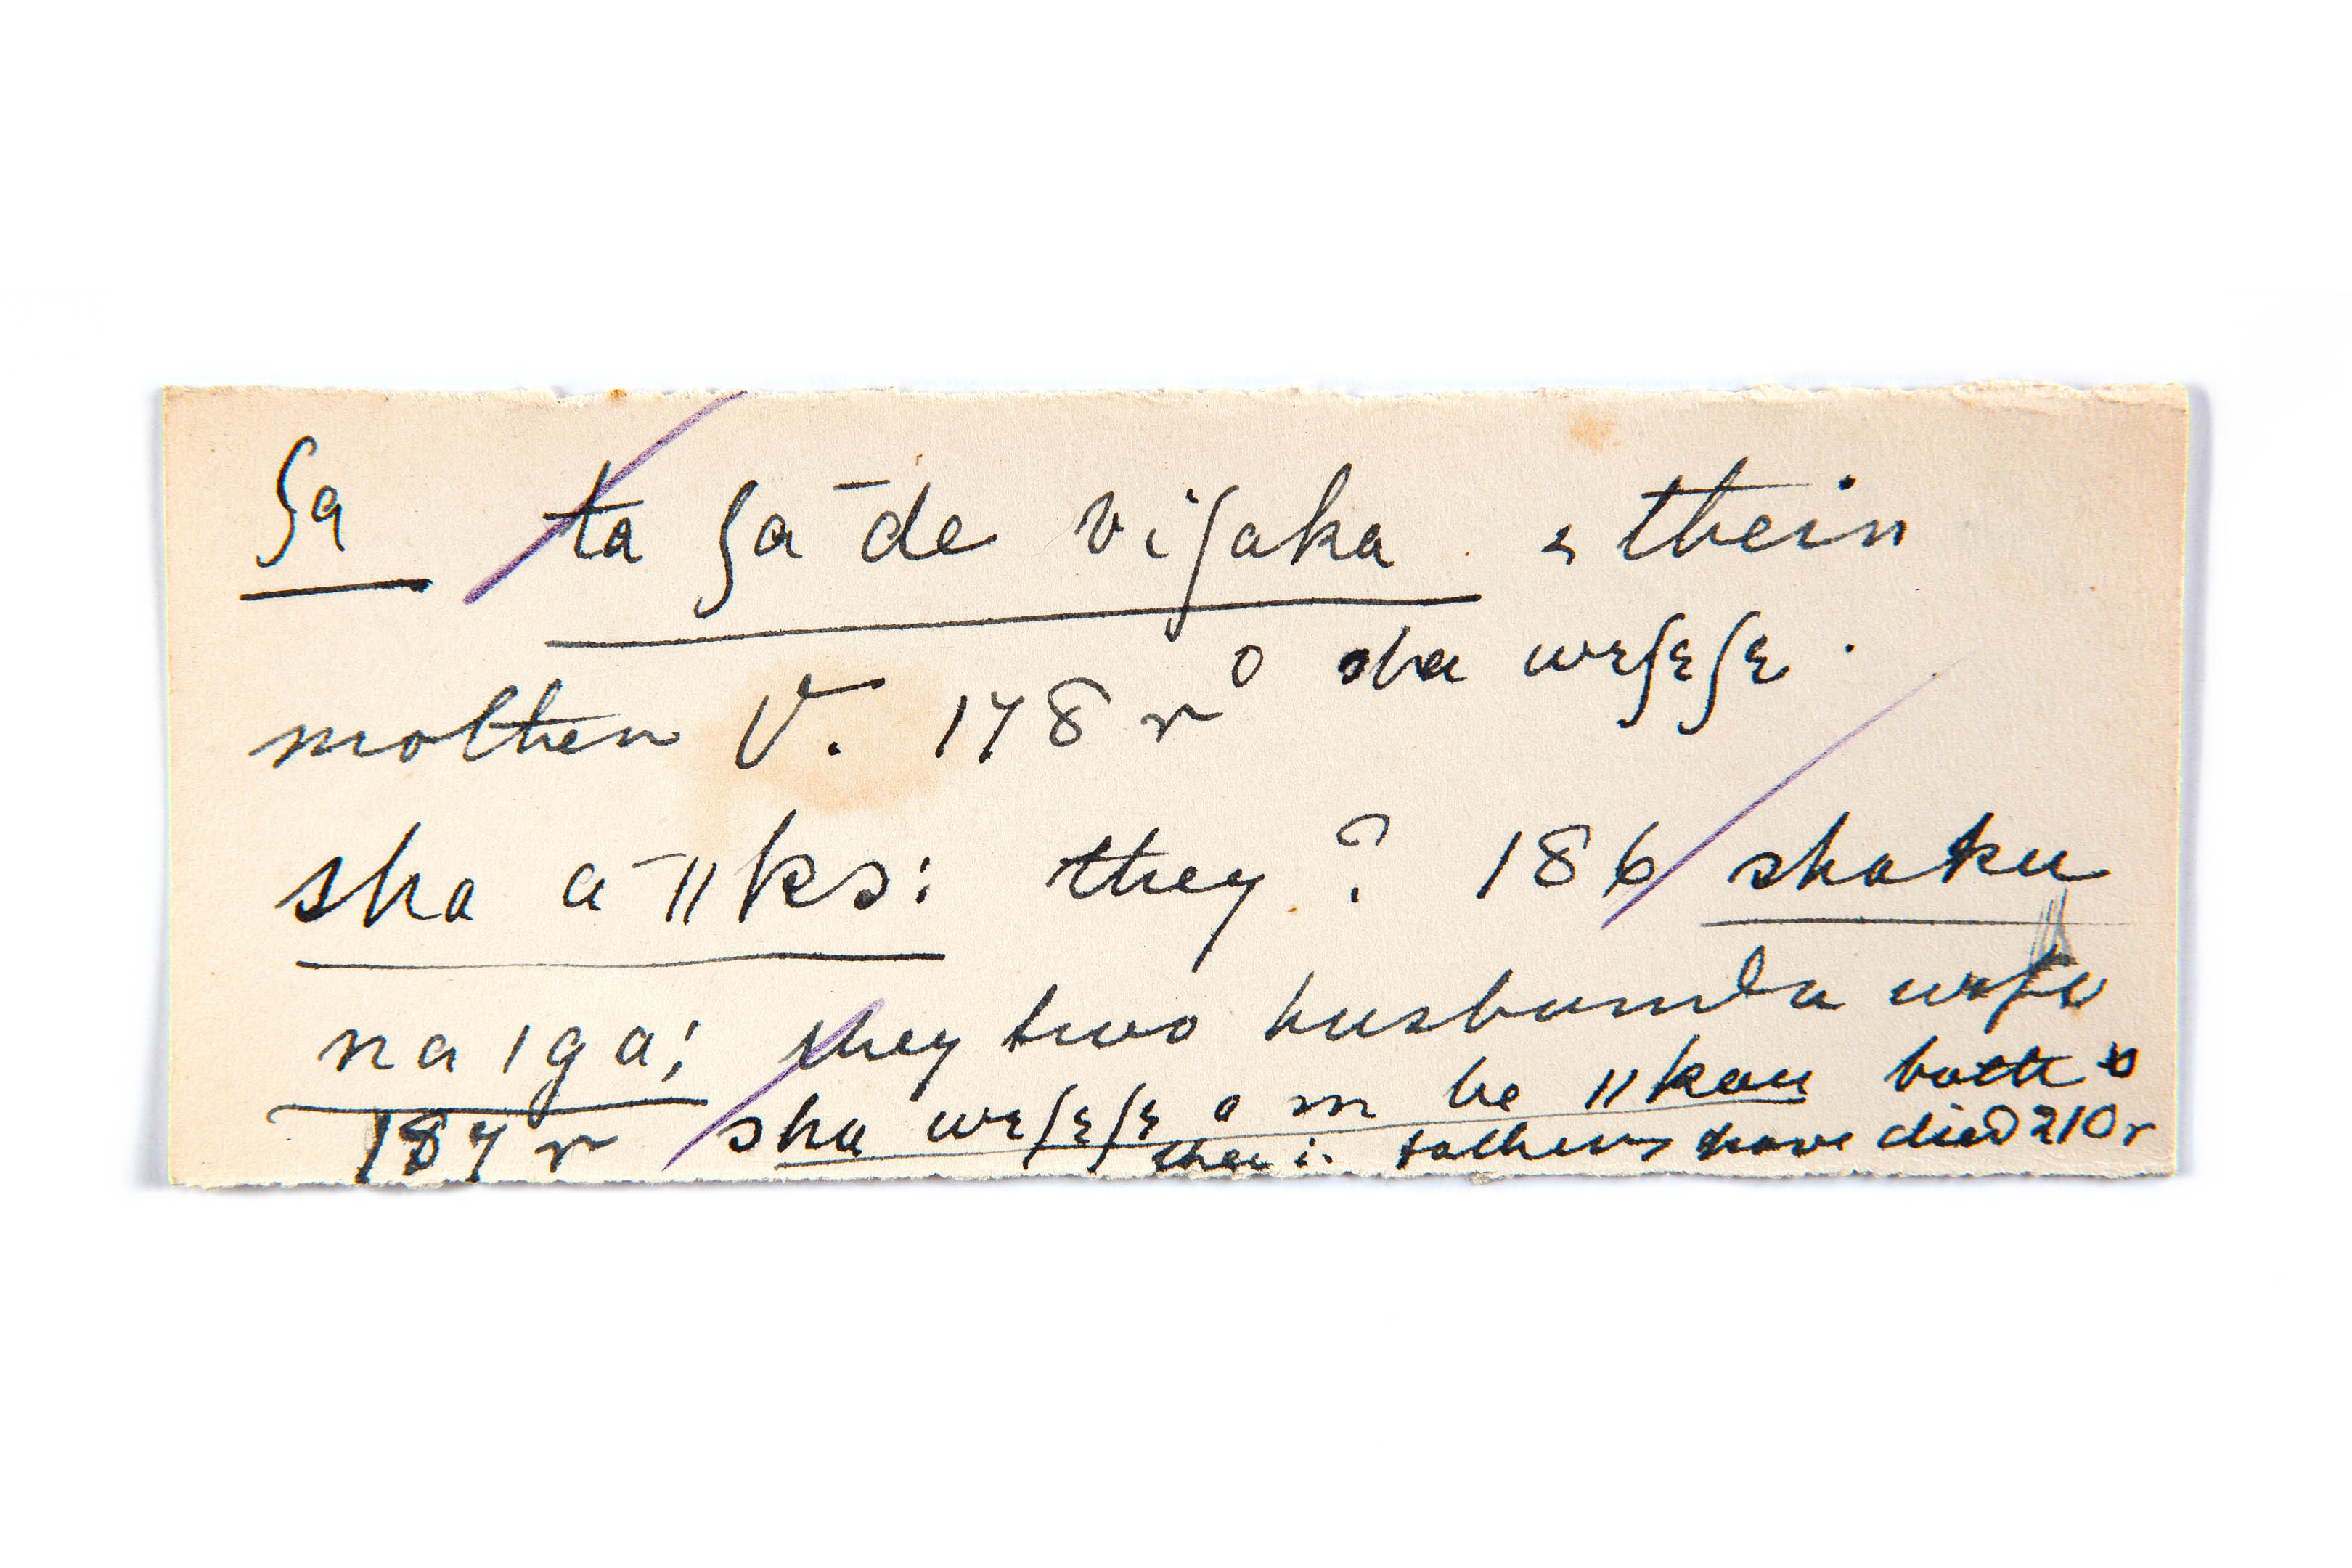 ʃa ta ʃā de viʃaka . thein
mothen V. 178 r⁰ sha wɛʃɛʃɛ .
sha ā ǁks: they ? 186 shaku
na ǀga; they two husband wife
187 r sha wɛʃɛʃɛ a m he ǁkau both
fathers have died 210 r